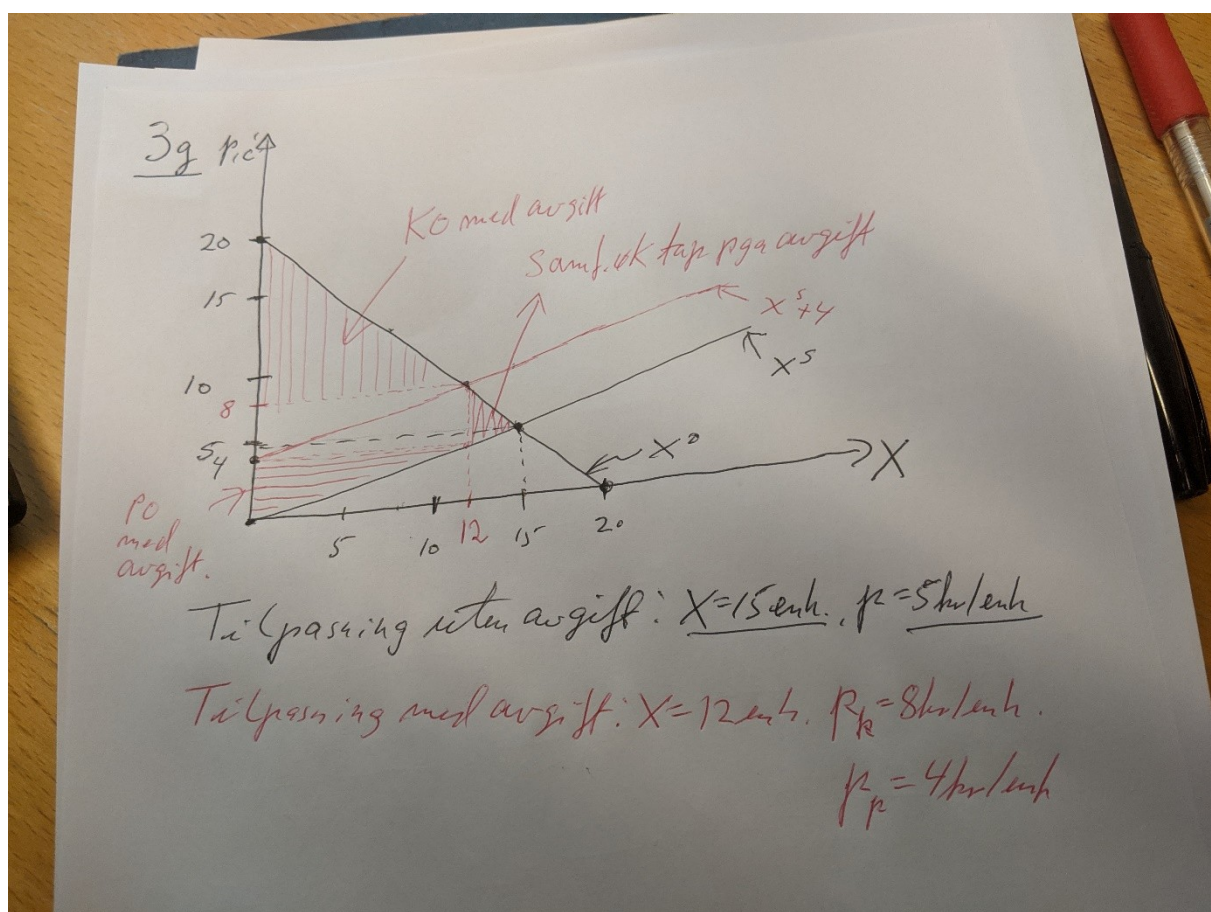 3g p,c'
KO med avgift
Samf.øk tap pga avgift
20
15
10
8
5
4
X^s+4
X^s
X^D
X
PO
med
avgift.
5 10 12 15 20
Tilpasning uten avgift: X=15enh. p=5kr/enh
Tilpasning med avgift: X=12enh. P_k=8kr/enh.
p_p=4kr/enh